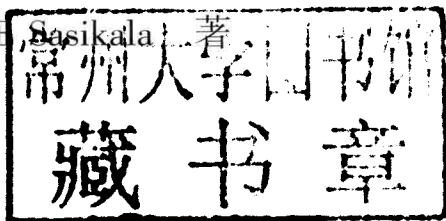 Sasikala 著
常州大学图书馆
藏书章